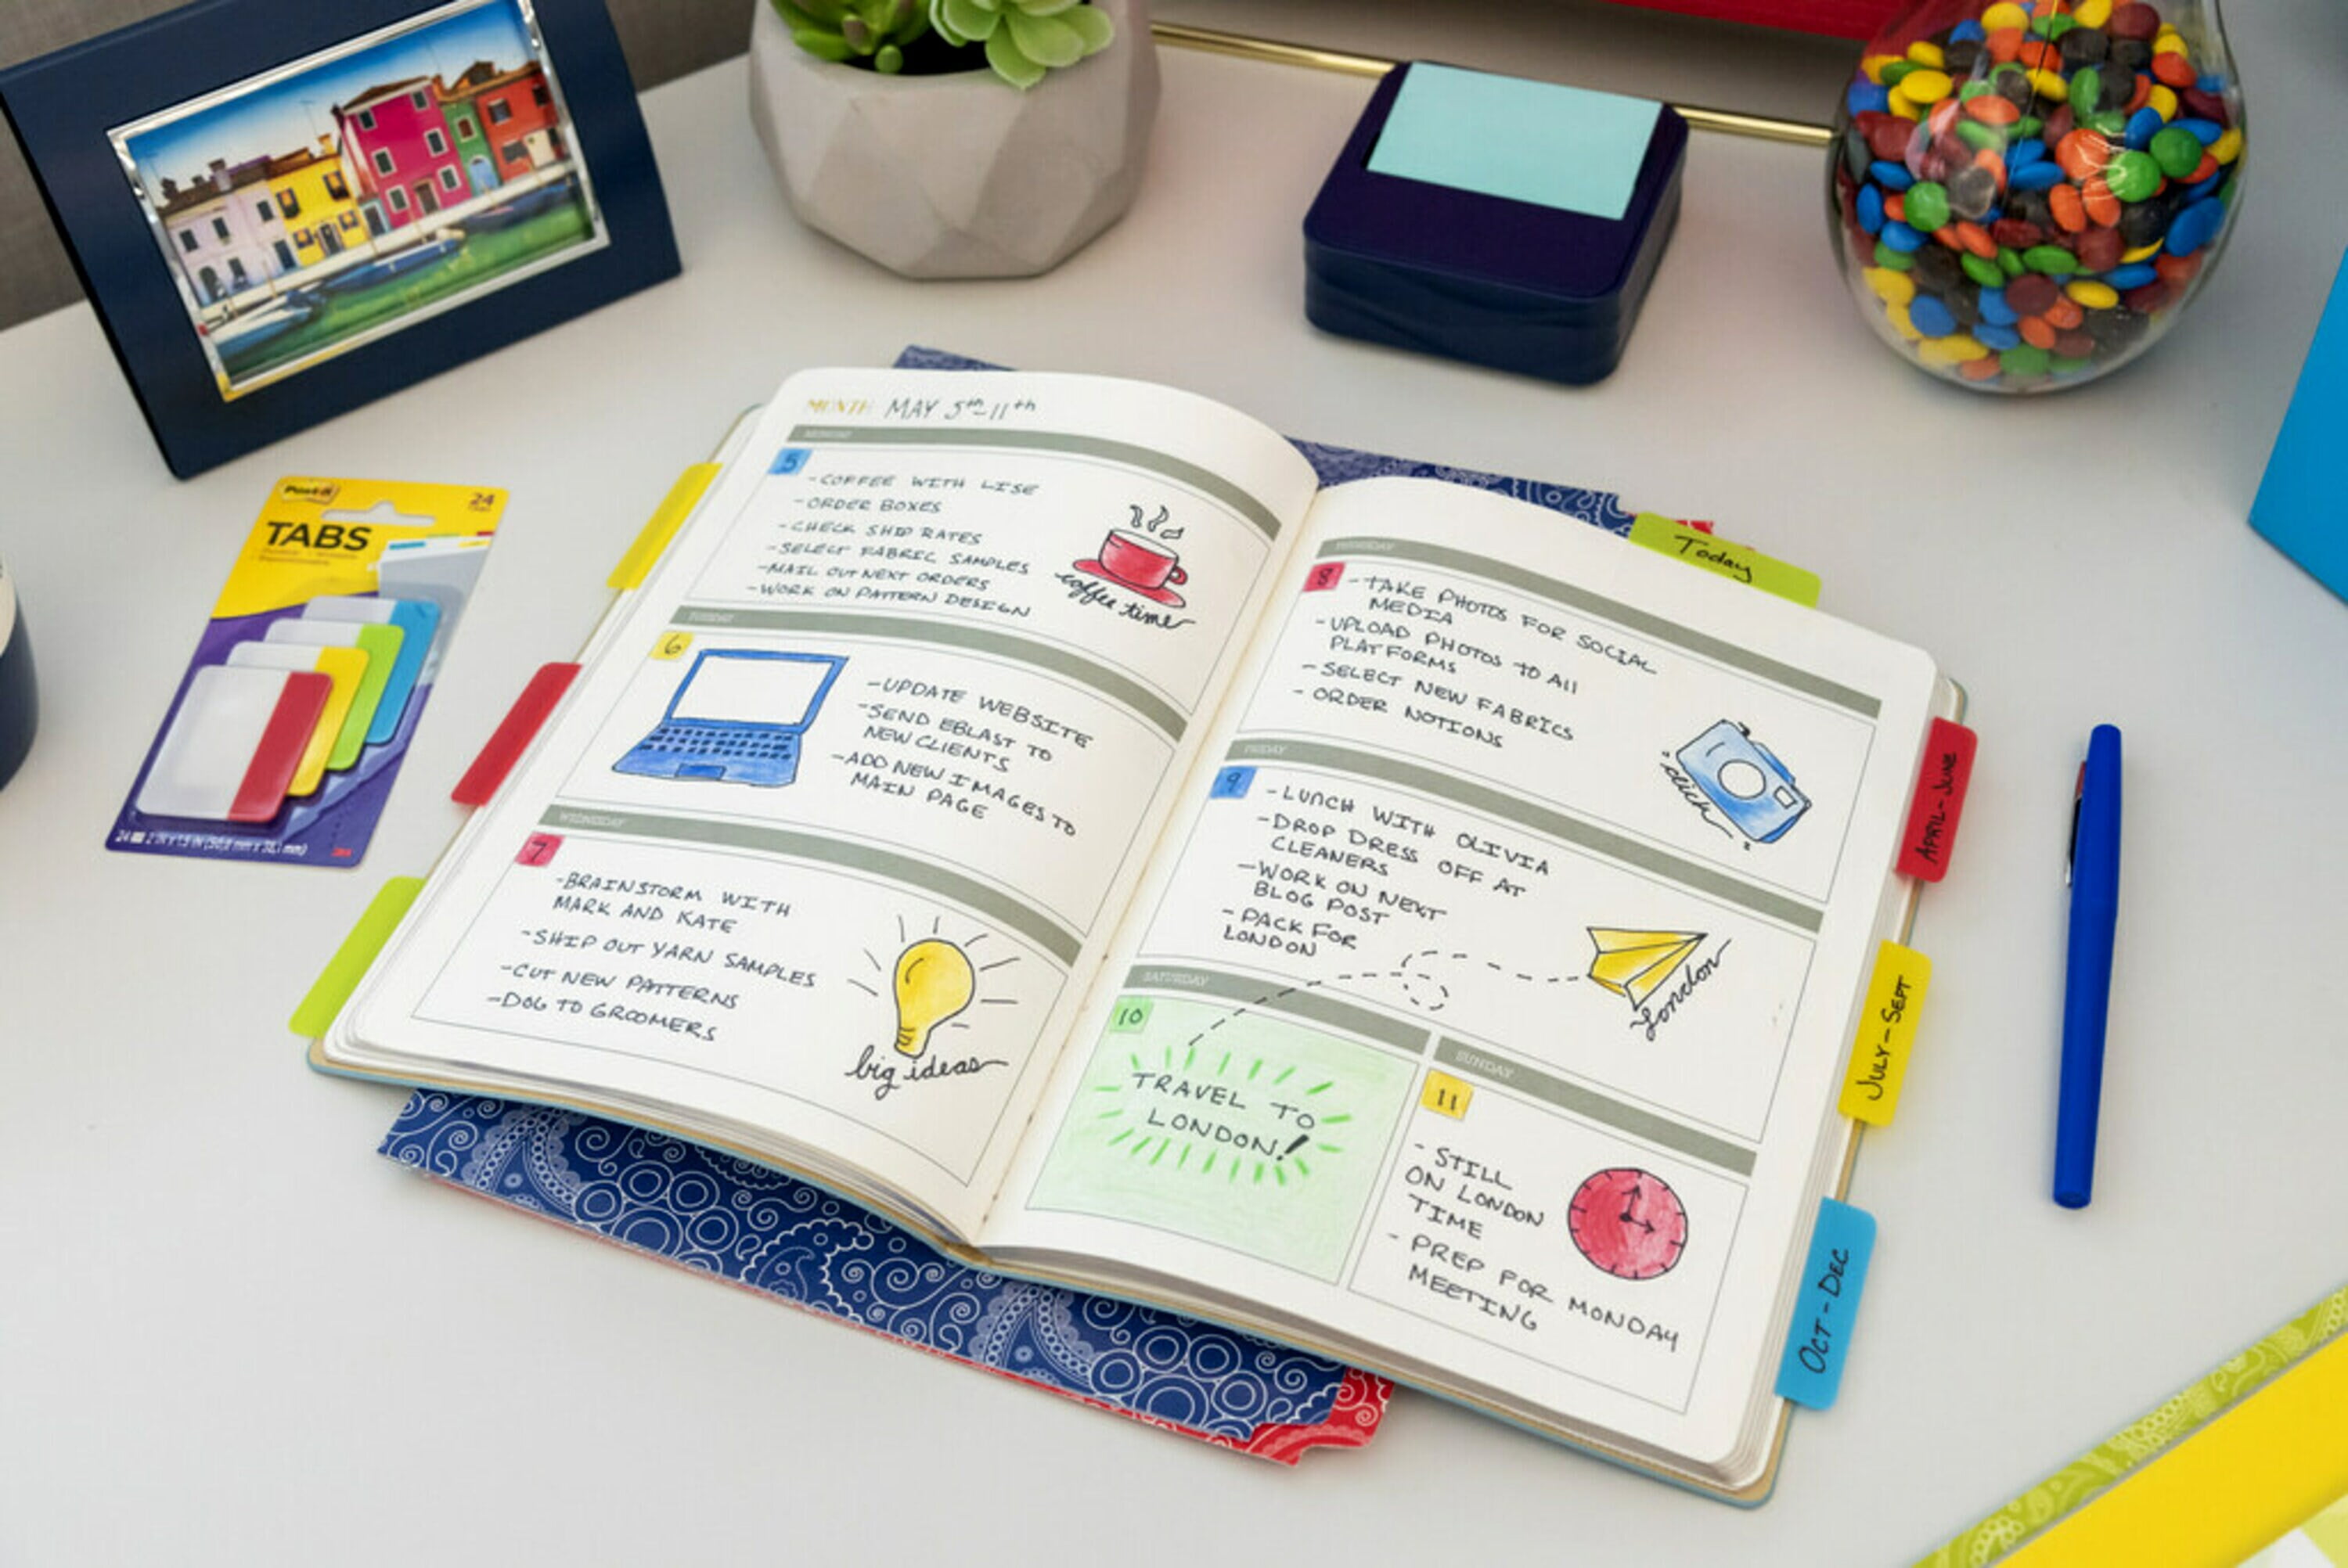 MONTH MAY 5th-11th
MONDAY
5
-COFFEE WITH LISE
-ORDER BOXES
-CHECK SHIP RATES
-SELECT FABRIC SAMPLES
-MAIL OUT NEXT ORDERS
-WORK ON PATTERN DESIGN
coffee time
TUESDAY
6
-UPDATE WEBSITE
-SEND EBLAST TO
NEW CLIENTS
-ADD NEW IMAGES TO
MAIN PAGE
WEDNESDAY
7
-BRAINSTORM WITH
MARK AND KATE
-SHIP OUT YARN SAMPLES
-CUT NEW PATTERNS
-DOG TO GROOMERS
big ideas
Today
THURSDAY
8
-TAKE PHOTOS FOR SOCIAL
MEDIA
-UPLOAD PHOTOS TO All
PLATFORMS
-SELECT NEW FABRICS
-ORDER NOTIONS
click
FRIDAY
9
-LUNCH WITH OLIVIA
-DROP DRESS OFF AT
CLEANERS
-WORK ON NEXT
BLOG POST
-PACK FOR
LONDON
London
SATURDAY
10
TRAVEL TO
LONDON!
SUNDAY
11
- STILL
ON LONDON
TIME
- PREP FOR MONDAY
MEETING
APRIL-JUNE
JULY-SEPT
OCT-DEC
Post-it
24
TABS
24
3M